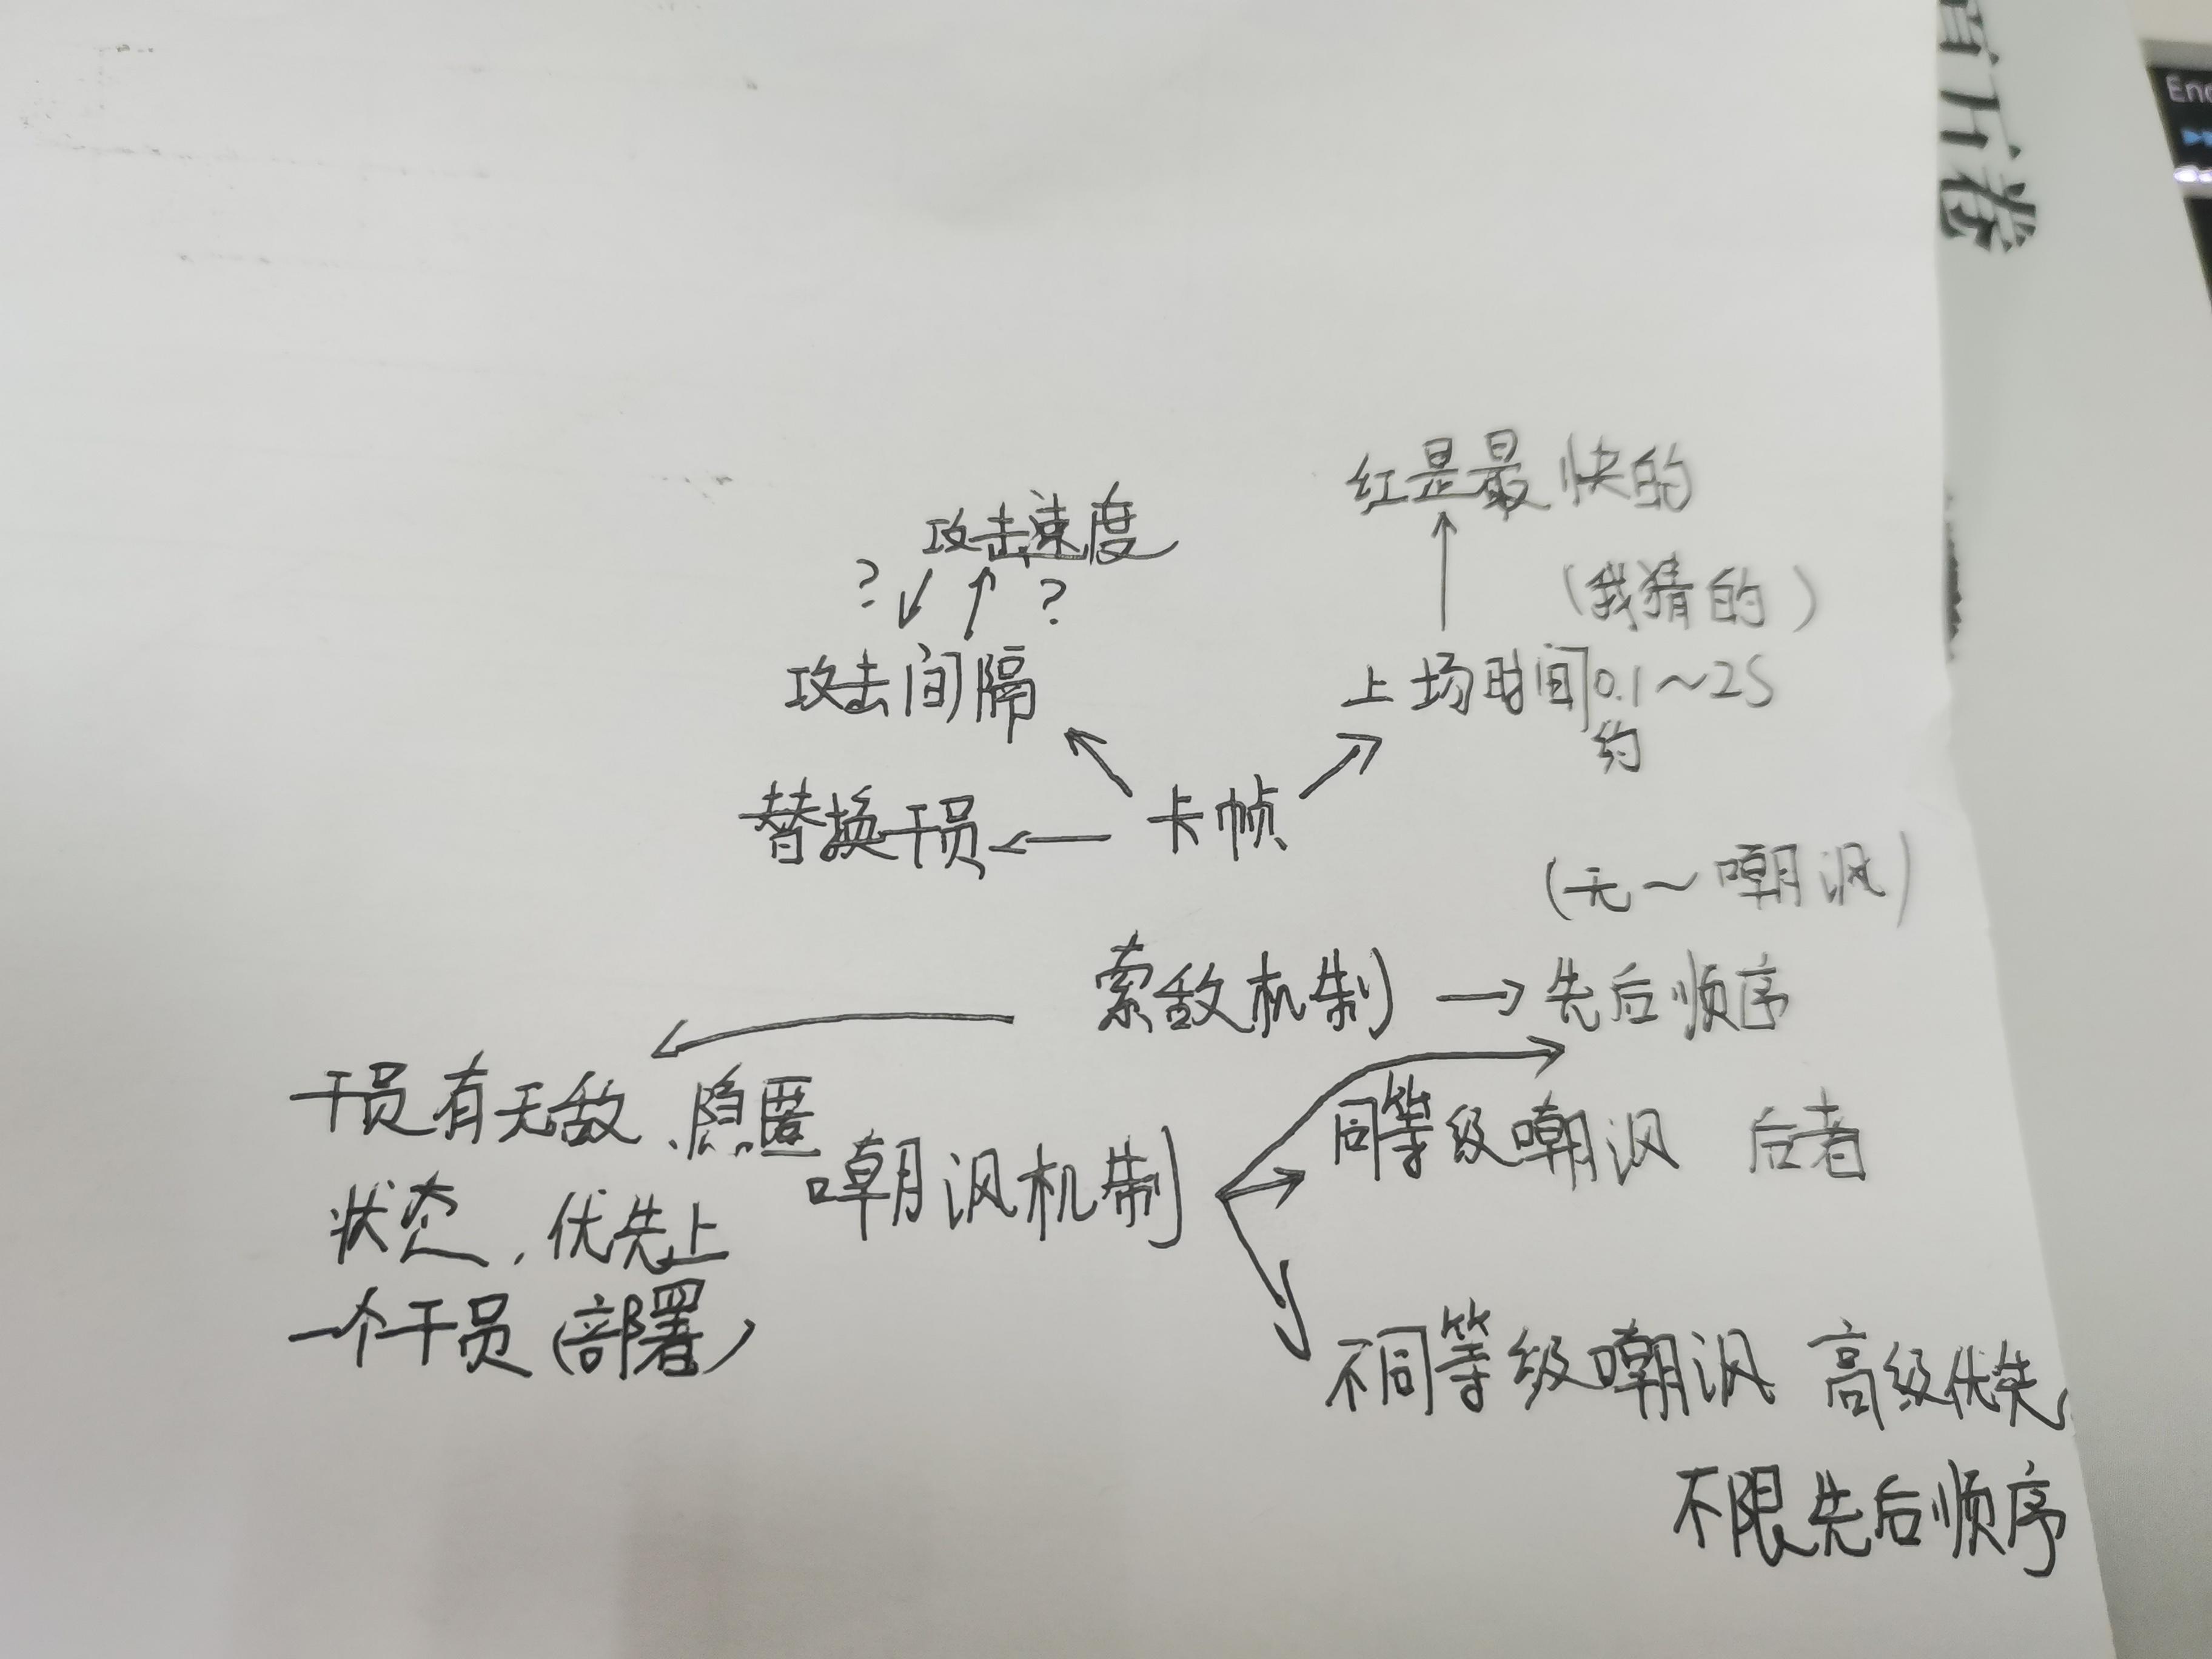 红是最快的
攻击速度
? ?
(我猜的)
攻击间隔
上场时间0.1~2S
约
替换干员
卡帧
(无~嘲讽)
索敌机制
先后顺序
干员有无敌、隐匿
状态,优先上
一个干员(部署)
嘲讽机制
同等级嘲讽 后者
不同等级嘲讽 高级优先
不限先后顺序
下卷
End